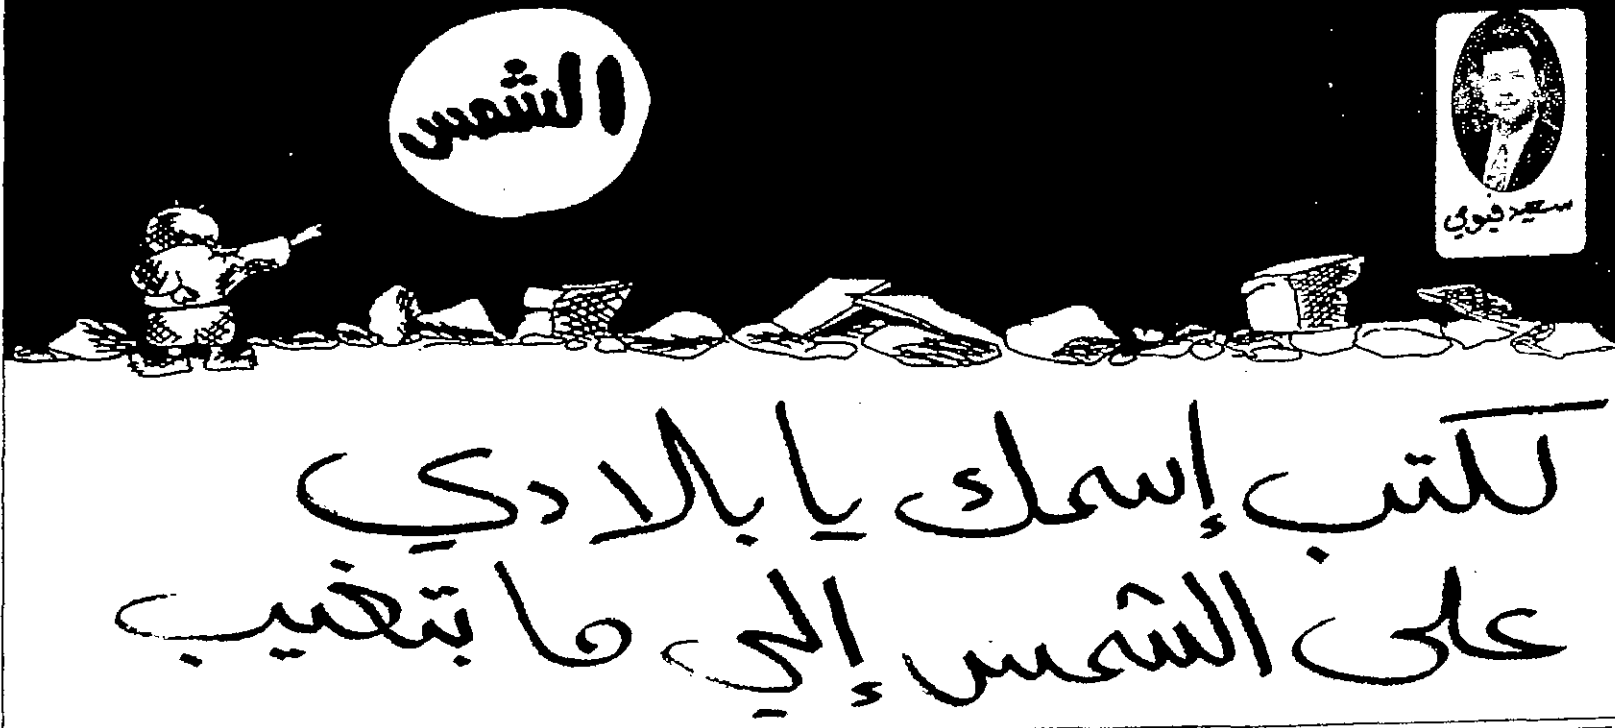 الشمس
سعيد فيومي
لكتب إسمك يا بلادي
على الشمس إلي ما بتغيب